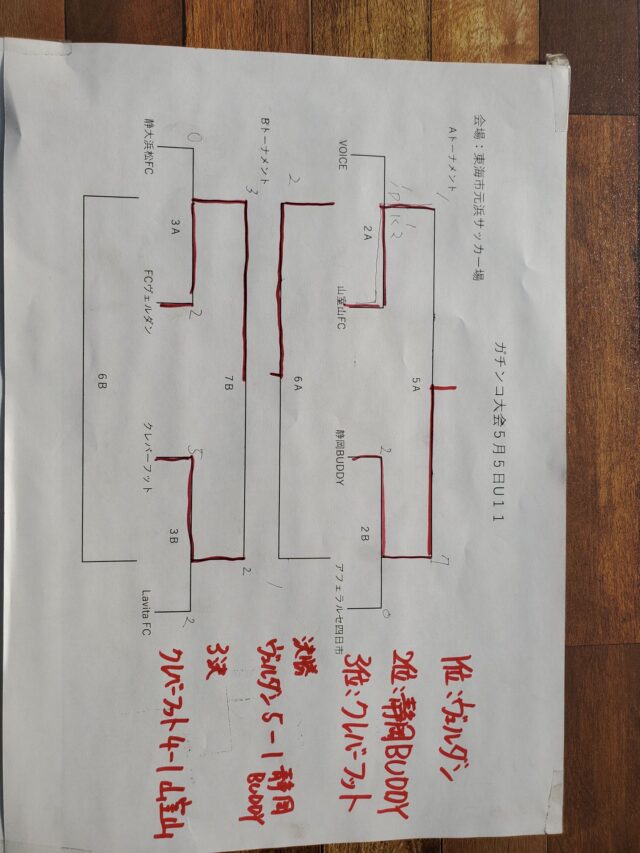 ガチンコ大会5月5日U11
会場：東海市元浜サッカー場
Aトーナメント
1
7
5A
1PK2
1
2
0
2A
2B
VOICE
山室山FC
静岡BUDDY
アフェラルセ四日市
2
1
6A
Bトーナメント
3
2
7B
0
2
5
2
3A
3B
静大浜松FC
FCヴェルダン
クレバーフット
Lavita FC
6B
1位：ヴェルダン
2位：静岡BUDDY
3位：クレバーフット
決勝
ヴェルダン 5－1 静岡
BUDDY
3決
クレバーフット 4－1 山室山